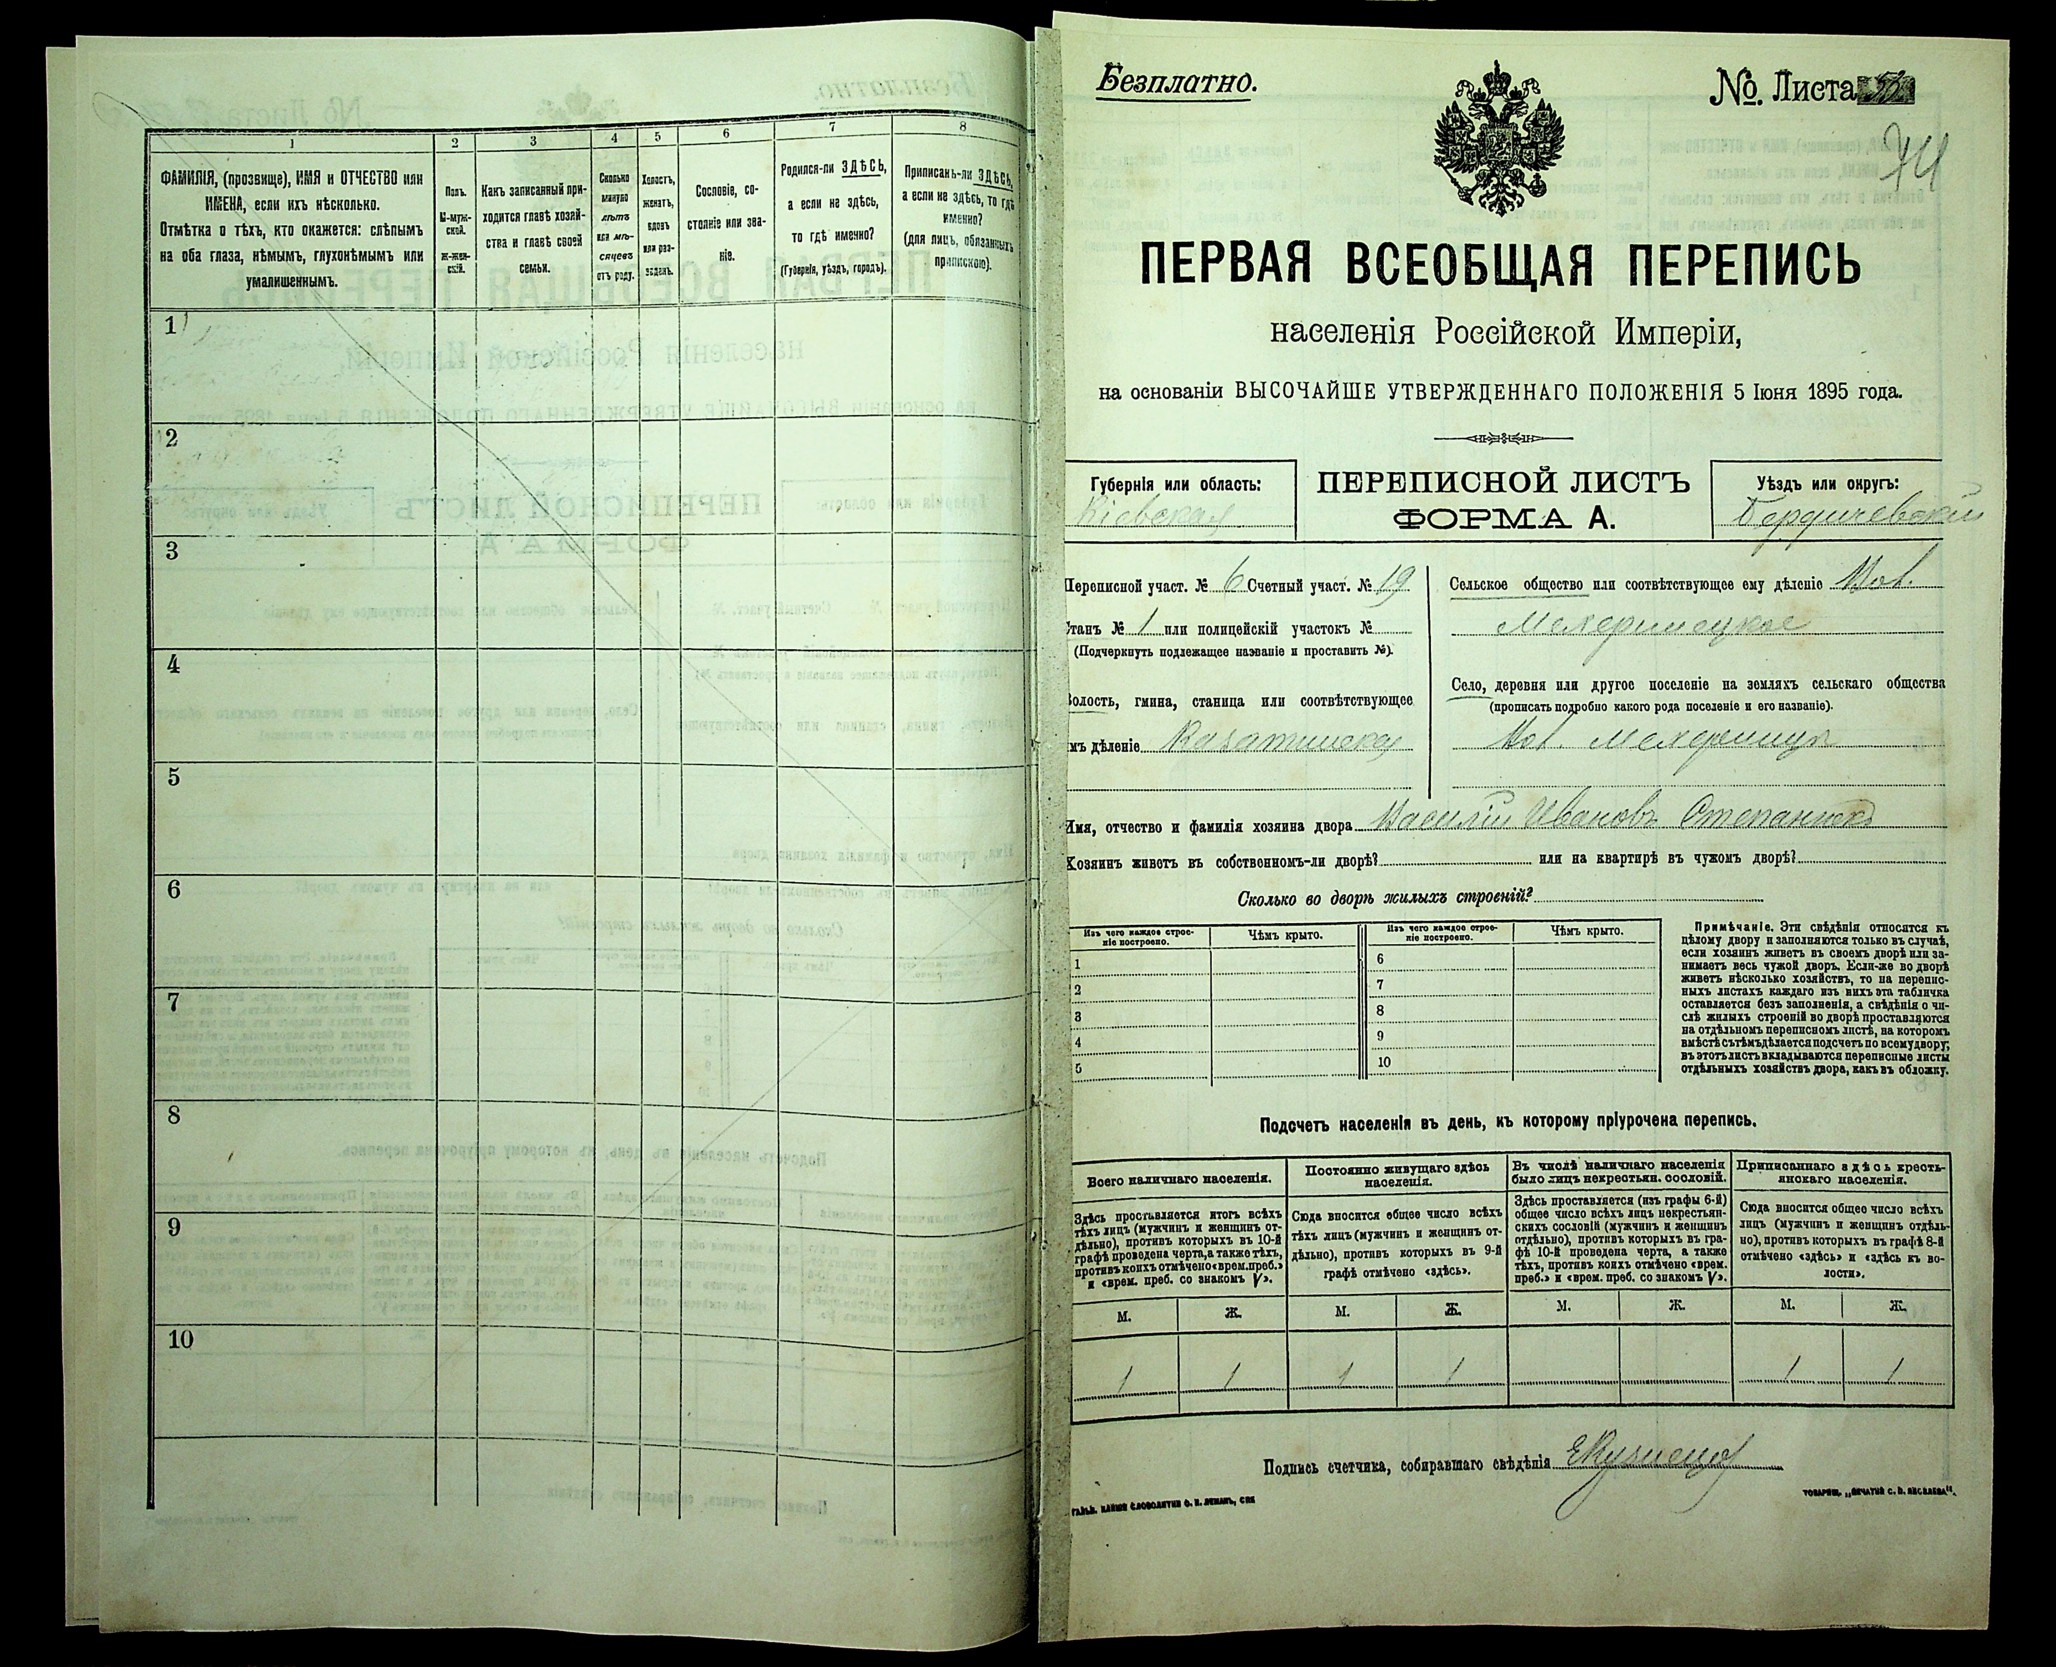 1
2
3
4
5
6
7
8
ФАМИЛІЯ, (прозвище), ИМЯ и ОТЧЕСТВО или
ИМЕНА, если ихъ нѣсколько.
Отмѣтка о тѣхъ, кто окажется: слѣпымъ
на оба глаза, нѣмымъ, глухонѣмымъ или
умалишеннымъ.
Полъ.
М-муж-
ской.
ж-жен-
скій.
Какъ записанный при-
ходится главѣ хозяй-
ства и главѣ своей
семьи.
Сколько
минуло
лѣтъ
или мѣ-
сяцевъ
отъ роду.
Холостъ,
женатъ,
вдовъ
или раз-
веденъ.
Сословіе, со-
стояніе или зва-
ніе.
Родился-ли ЗДѢСЬ,
а если не здѣсь,
то гдѣ именно?
(Губернія, уѣздъ, городъ).
Приписанъ-ли ЗДѢСЬ,
а если не здѣсь, то гдѣ
именно?
(для лицъ, обязанныхъ
припискою).
1
2
3
4
5
6
7
8
9
10
Безплатно.
№. Листа
44
ПЕРВАЯ ВСЕОБЩАЯ ПЕРЕПИСЬ
населенія Россійской Имперіи,
на основаніи ВЫСОЧАЙШЕ УТВЕРЖДЕННАГО ПОЛОЖЕНІЯ 5 Іюня 1895 года.
Губернія или область:
Кіевская
ПЕРЕПИСНОЙ ЛИСТЪ
ФОРМА А.
Уѣздъ или округъ:
Бердичевскій
Переписной участ. № 6 Счетный участ. № 19
Станъ № 1 или полицейскій участокъ №
(Подчеркнуть подлежащее названіе и проставить №).
Волость, гмина, станица или соотвѣтствующее
имъ дѣленіе Казатинская
Сельское общество или соотвѣтствующее ему дѣленіе
Махаринецкое
Село, деревня или другое поселеніе на земляхъ сельскаго общества
(прописать подробно какого рода поселеніе и его названіе).
Махаринцы
Имя, отчество и фамилія хозяина двора Василій Ивановъ Степанюкъ
Хозяинъ живетъ въ собственномъ-ли дворѣ? или на квартирѣ въ чужомъ дворѣ?
Сколько во дворѣ жилыхъ строеній?
Изъ чего каждое строе-
ніе построено.
Чѣмъ крыто.
Изъ чего каждое строе-
ніе построено.
Чѣмъ крыто.
1
2
3
4
5
6
7
8
9
10
Примѣчаніе. Эти свѣдѣнія относятся къ
цѣлому двору и заполняются только въ случаѣ,
если хозяинъ живетъ въ своемъ дворѣ или за-
нимаетъ весь чужой дворъ. Если-же во дворѣ
живетъ нѣсколько хозяйствъ, то на перепис-
ныхъ листахъ каждаго изъ нихъ эта табличка
оставляется безъ заполненія, а свѣдѣнія о чи-
слѣ жилыхъ строеній во дворѣ проставляются
на отдѣльномъ переписномъ листѣ, на которомъ
вмѣстѣ съ тѣмъ дѣлается подсчетъ по всему двору;
въ этотъ листъ вкладываются переписные листы
отдѣльныхъ хозяйствъ двора, какъ въ обложку.
Подсчетъ населенія въ день, къ которому пріурочена перепись.
Всего наличнаго населенія.
Здѣсь проставляется итогъ всѣхъ
тѣхъ лицъ (мужчинъ и женщинъ от-
дѣльно), противъ которыхъ въ 10-й
графѣ проведена черта, а также тѣхъ,
противъ коихъ отмѣчено «врем. преб.»
и «врем. преб. со знакомъ V».
Постоянно живущаго здѣсь
населенія.
Сюда вносится общее число всѣхъ
тѣхъ лицъ (мужчинъ и женщинъ от-
дѣльно), противъ которыхъ въ 9-й
графѣ отмѣчено «здѣсь».
Въ числѣ наличнаго населенія
было лицъ некрестьян. сословій.
Здѣсь проставляется (изъ графы 6-й)
общее число всѣхъ лицъ некрестьян-
скихъ сословій (мужчинъ и женщинъ
отдѣльно), противъ которыхъ въ гра-
фѣ 10-й проведена черта, а также
тѣхъ, противъ коихъ отмѣчено «врем.
преб.» и «врем. преб. со знакомъ V».
Приписаннаго здѣсь кресть-
янскаго населенія.
Сюда вносится общее число всѣхъ
лицъ (мужчинъ и женщинъ отдѣль-
но), противъ которыхъ въ графѣ 8-й
отмѣчено «здѣсь» и «здѣсь къ во-
лости».
М. Ж. М. Ж. М. Ж. М. Ж.
1 1 1 1 1 1
Подпись счетчика, собиравшаго свѣдѣнія ЕКузнецов
СЛОВОЛИТНИ О. И. ЛЕМАНЪ, СПБ
ТОВАРИЩ. „ПЕЧАТНЯ С. П. ЯКОВЛЕВА".